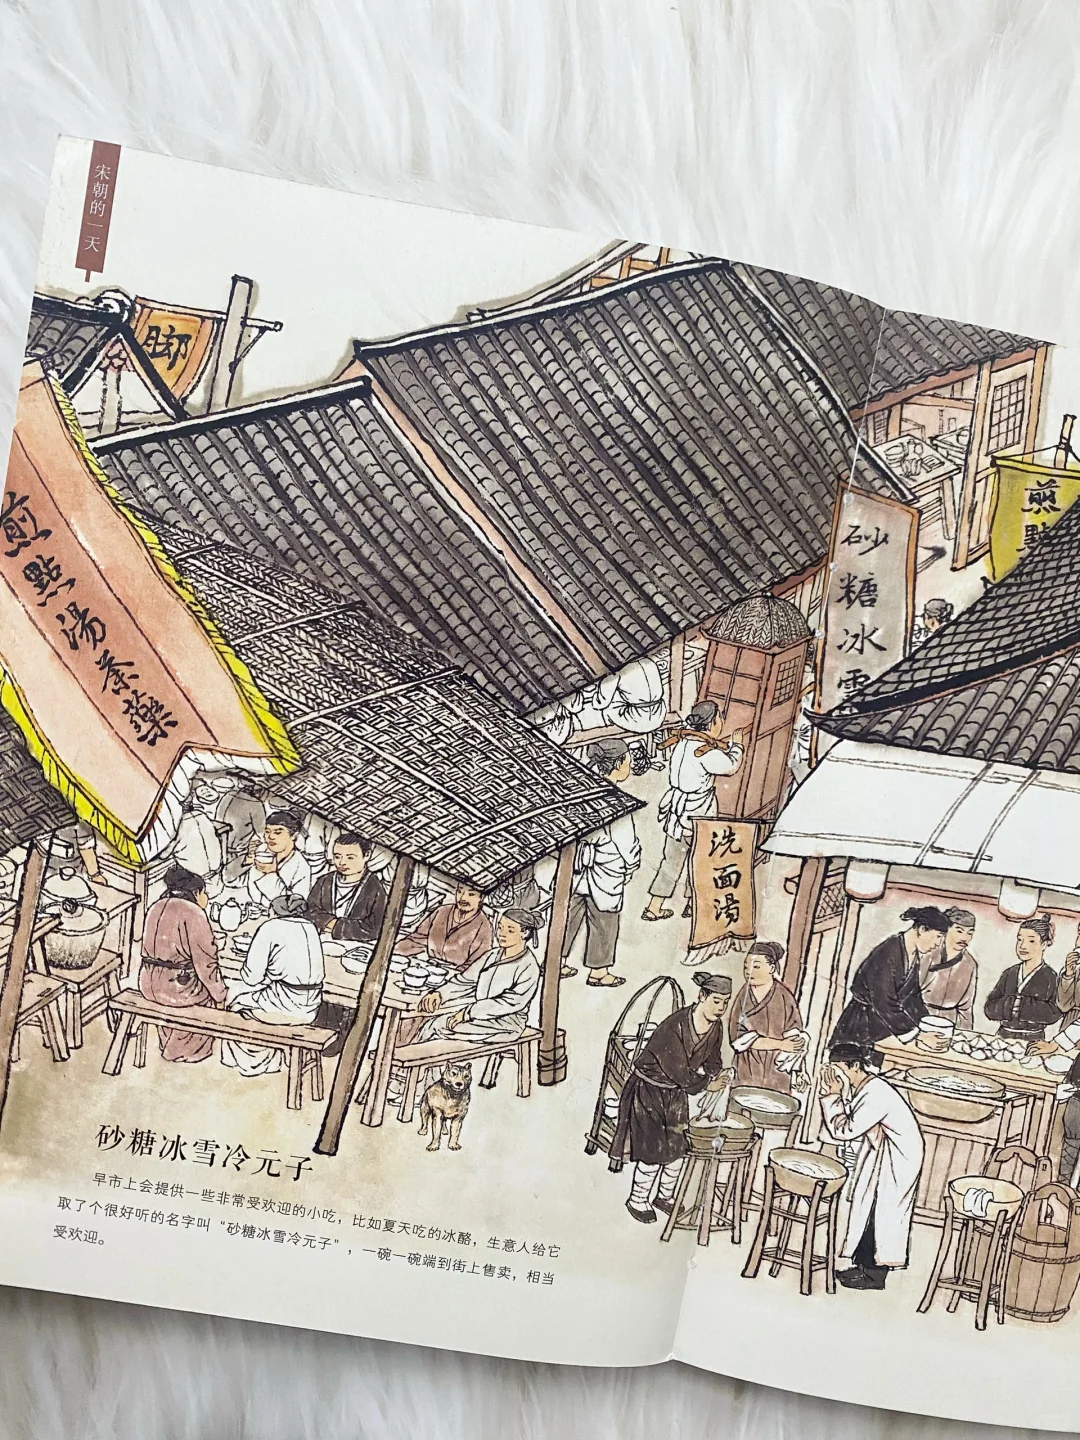 宋朝的一天
脚
煎點湯茶藥
砂糖冰雪
煎點
洗面湯
砂糖冰雪冷元子
早市上会提供一些非常受欢迎的小吃，比如夏天吃的冰酪，生意人给它
取了个很好听的名字叫“砂糖冰雪冷元子”，一碗一碗端到街上售卖，相当
受欢迎。